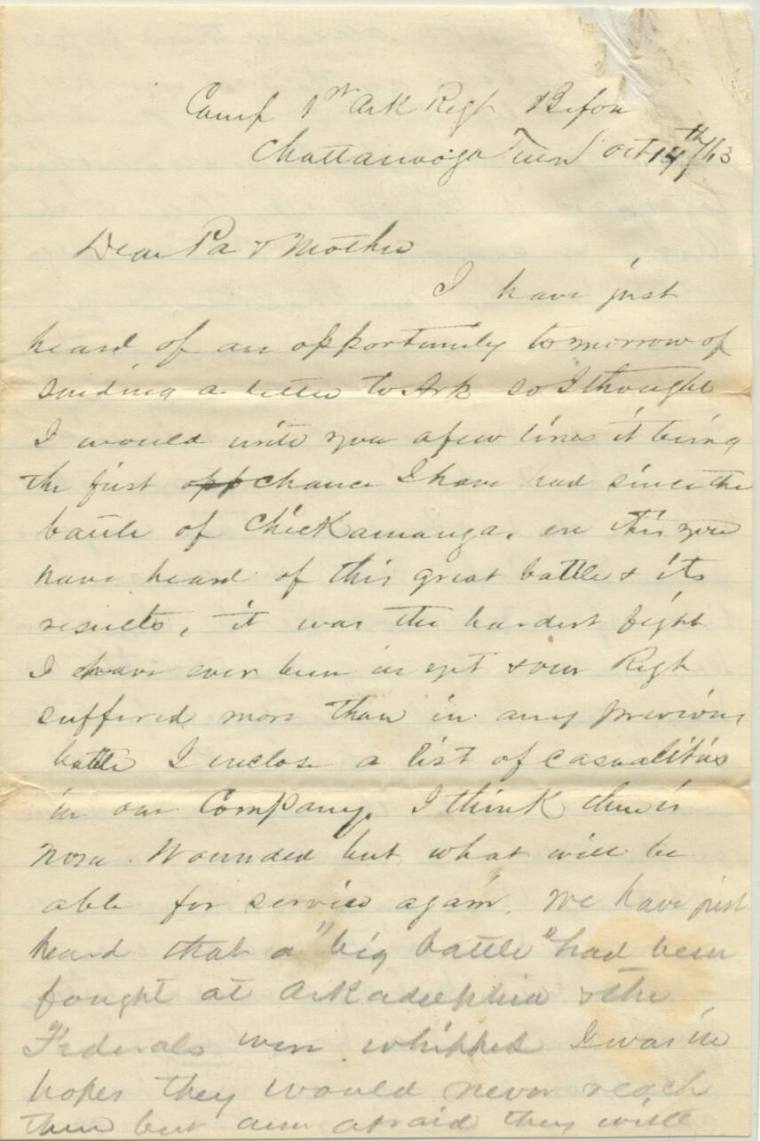 Camp 1st Ark Regt Before
Chattanooga Tenn Oct 14th/63
Dear Pa & Mother
I have just
heard of an opportunity tomorrow of
sending a letter to Ark so I thought
I would write you a few lines it being
the first opp chance I have had since the
battle of Chickamauga, ere this you
have heard of this great battle & its
results, it was the hardest fight
I have ever been in yet & our Regt
suffered more than in any previous
battle I enclose a list of casualities
in our Company. I think there is
none Wounded but what will be
able for service again. We have just
heard that a "big battle" had been
fought at Arkadelphia & the
Federals were whipped I was in
hopes they would never reach
there but am afraid they will